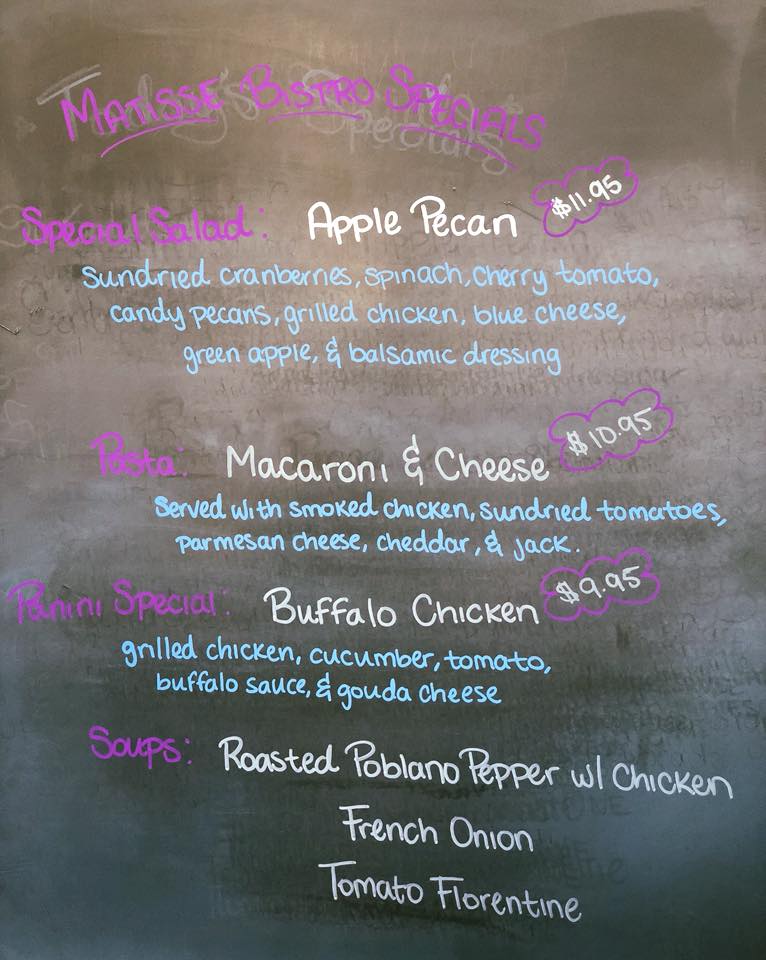 MATISSE BISTRO SPECIALS
Special Salad: Apple Pecan $11.95
Sundried cranberries, spinach, cherry tomato,
candy pecans, grilled chicken, blue cheese,
green apple, & balsamic dressing
Pasta: Macaroni & Cheese $10.95
Served with smoked chicken, sundried tomatoes,
parmesan cheese, cheddar, & jack.
Panini Special: Buffalo Chicken $9.95
grilled chicken, cucumber, tomato,
buffalo sauce, & gouda cheese
Soups: Roasted Poblano Pepper w/ Chicken
French Onion
Tomato Florentine